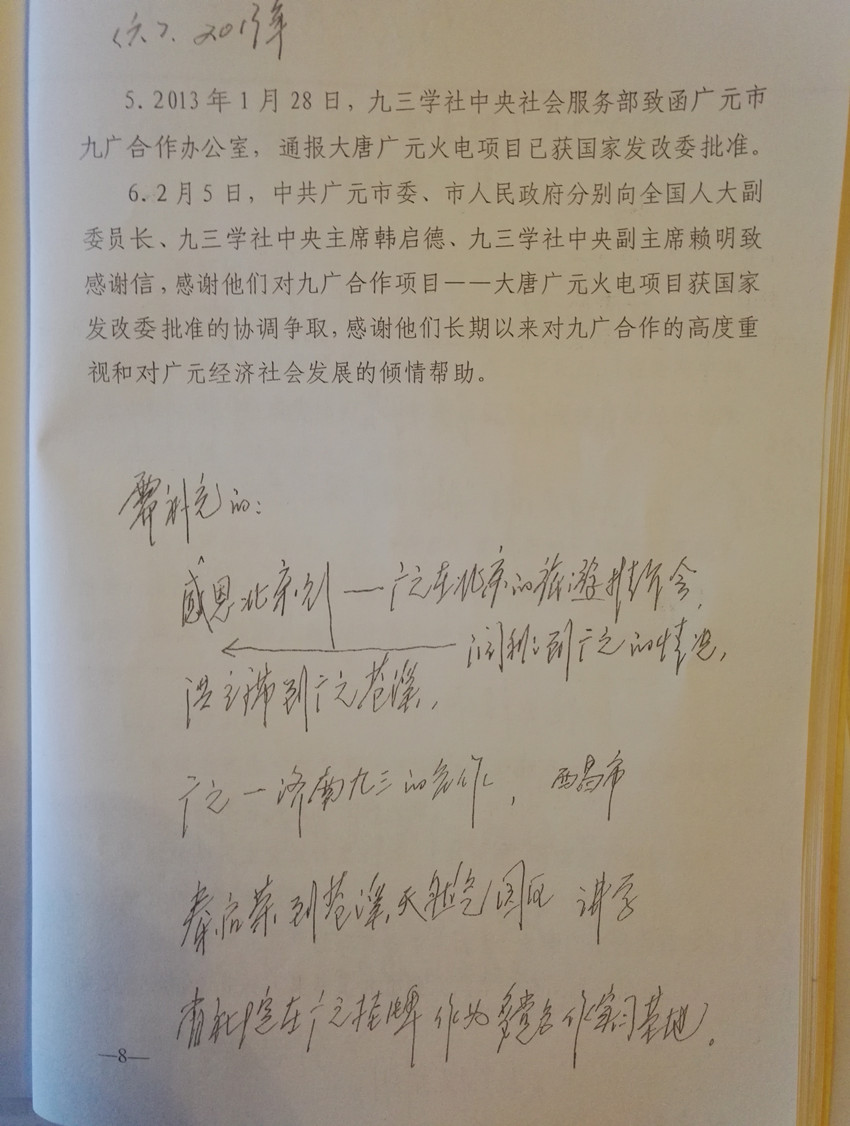 2013年
5. 2013年1月28日，九三学社中央社会服务部致函广元市
九广合作办公室，通报大唐广元火电项目已获国家发改委批准。
6. 2月5日，中共广元市委、市人民政府分别向全国人大副
委员长、九三学社中央主席韩启德、九三学社中央副主席赖明致
感谢信，感谢他们对九广合作项目——大唐广元火电项目获国家
发改委批准的协调争取，感谢他们长期以来对九广合作的高度重
视和对广元经济社会发展的倾情帮助。
需补充的：
感恩北京行——广元在北京的旅游推介会，
到广元的情况，
洪主席到广元苍溪，
广元一济南九三的合作，西昌市
秦启荣到苍溪天然气园区 讲学
省社院在广元挂牌 作为多党合作实习基地。
—8—